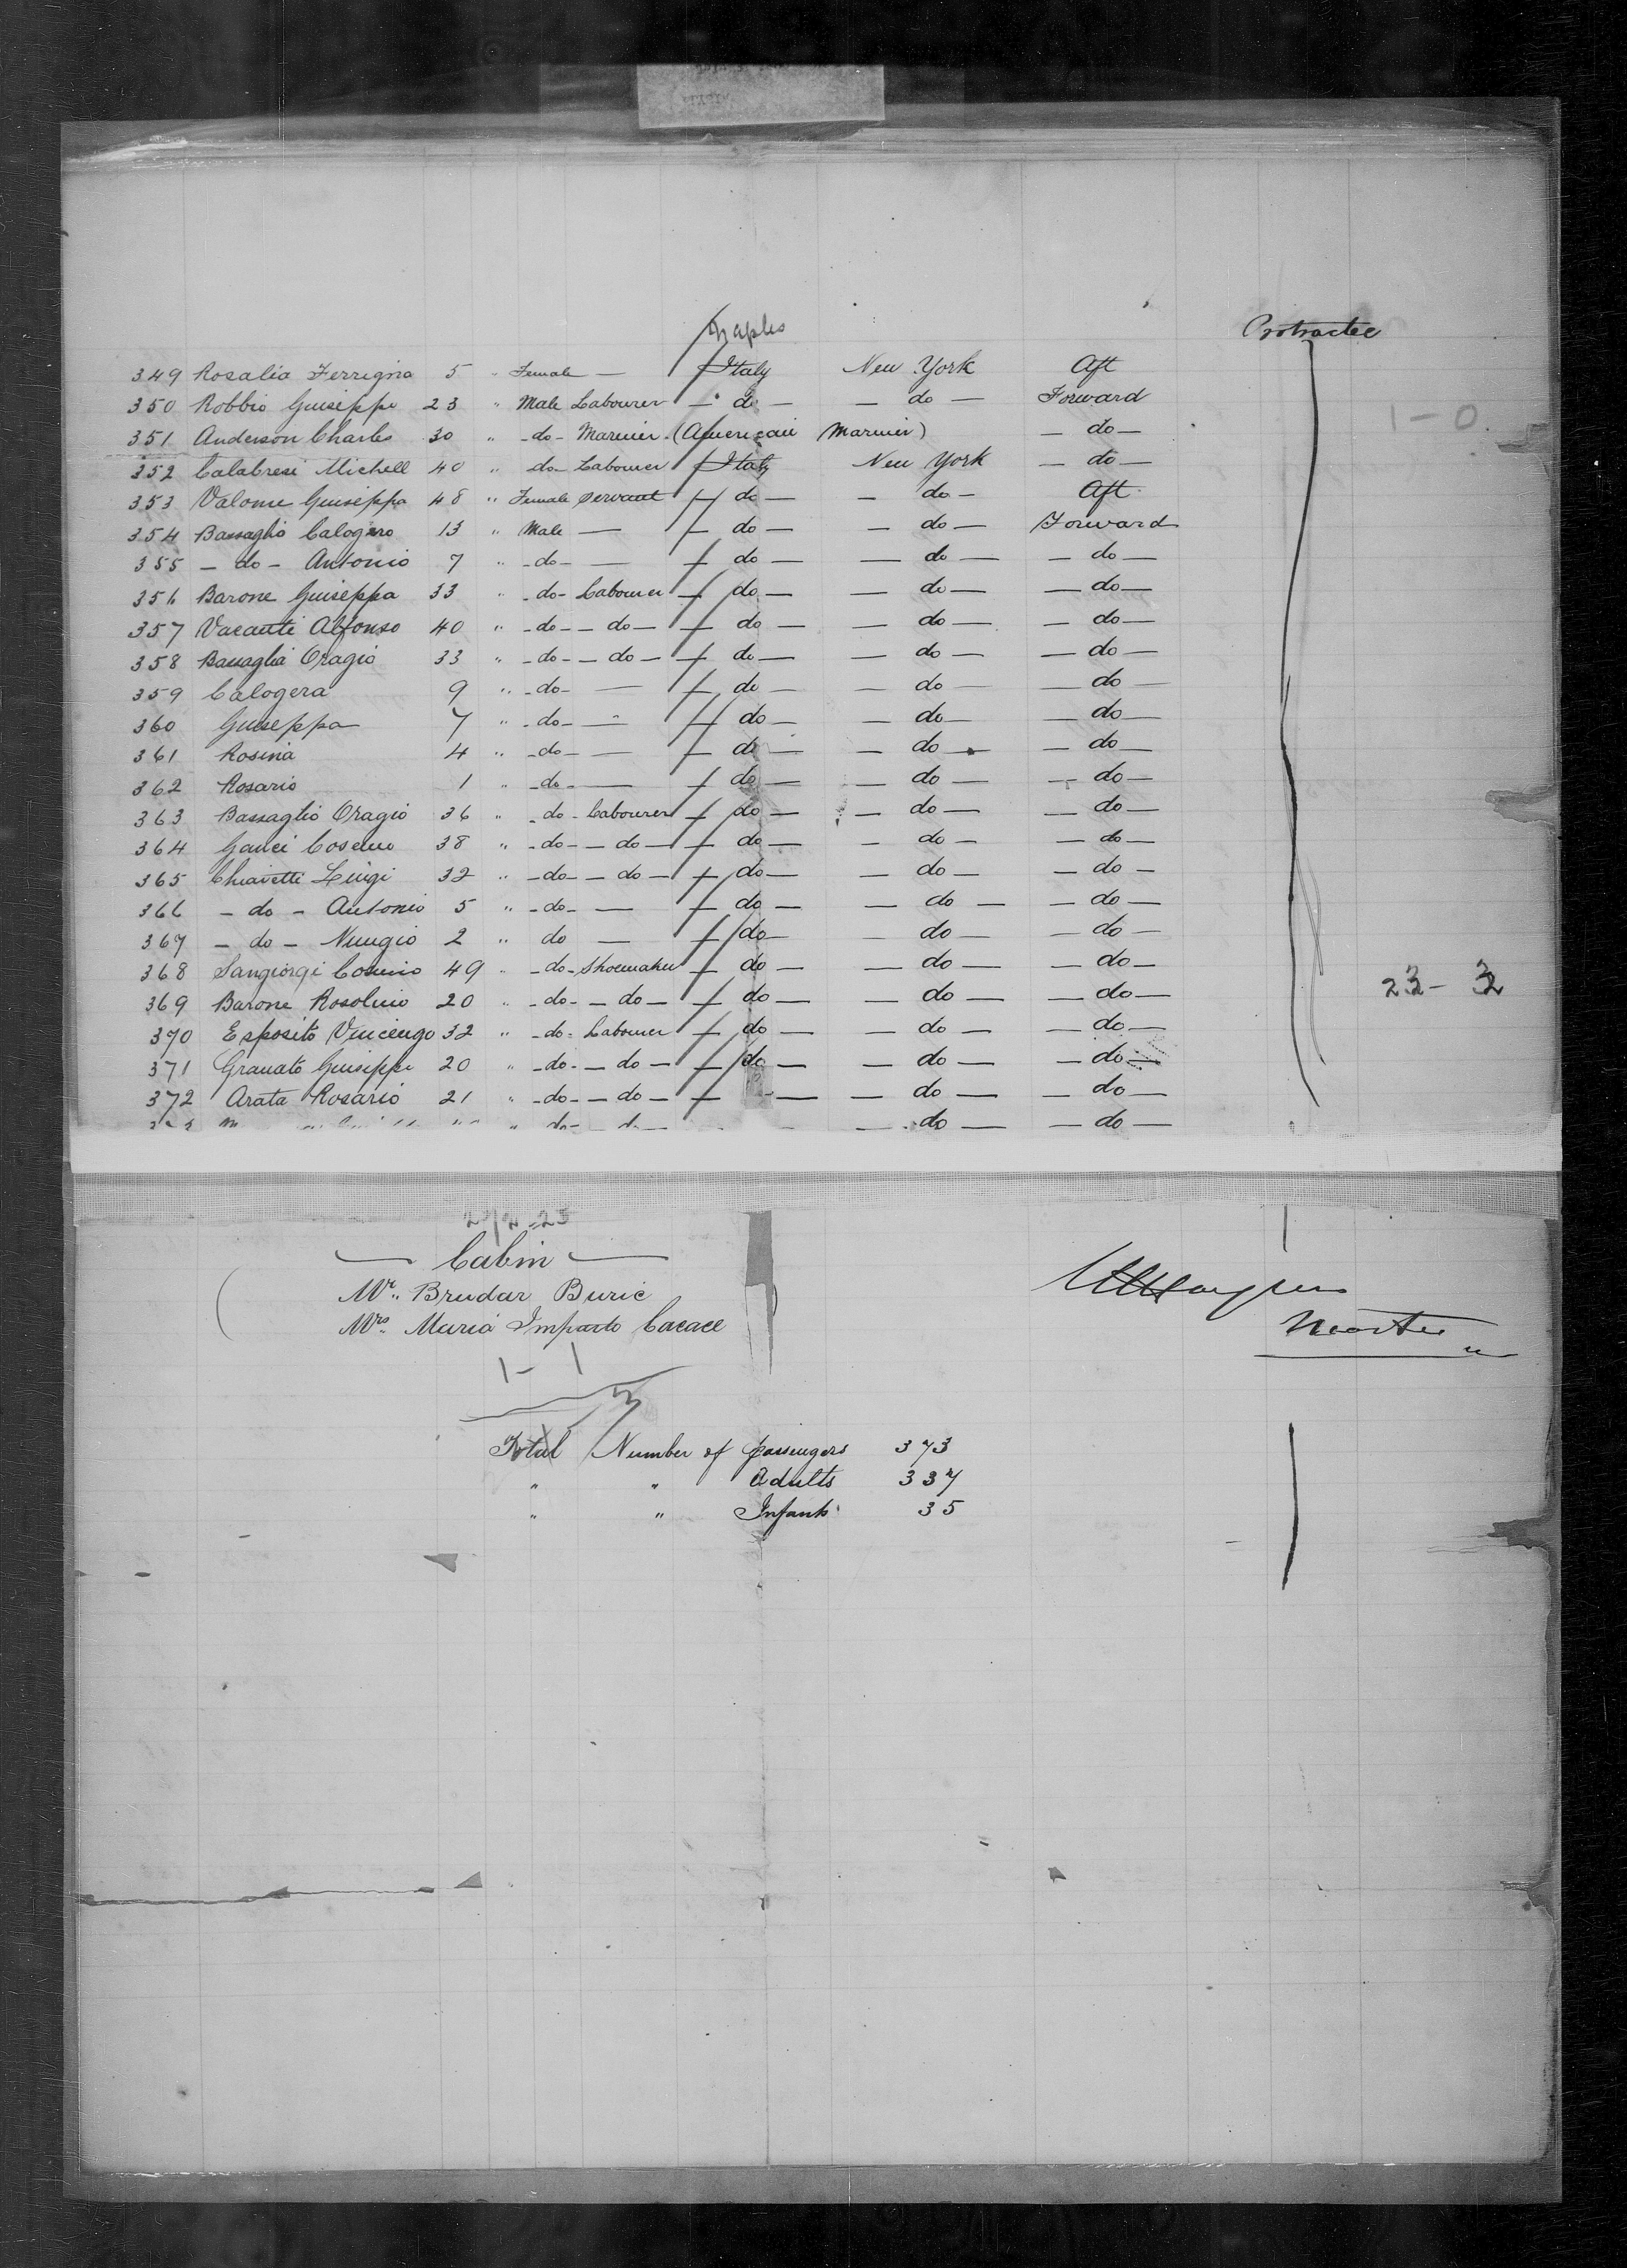 Naples
Protracted
349 Rosalia Ferrigna 5 " Female — Italy New York Aft
350 Robbio Guiseppe 23 " Male Labourer — do — — do — Forward
351 Anderson Charles 30 " -do- Marinier (American Marinier) — do —
1-0.
352 Calabresi Michell 40 " do- Labourer Italy New York — do —
353 Valome Guiseppa 48 " Female Servant — do — — do — Aft
354 Bassaglio Calogero 13 " Male — — do — — do — Forward
355 — do — Antonio 7 " -do- — — do — — do — — do —
356 Barone Guiseppa 33 " -do- Labourer — do — — do — — do —
357 Vacanti Alfonso 40 " -do- — do — — do — — do — — do —
358 Bassaglia Oragio 33 " -do- — do — — do — — do — — do —
359 Calogera 9 " -do- — — do — — do — — do —
360 Guiseppa 7 " -do- — — do — — do — — do —
361 Rosina 4 " -do- — — do — — do — — do —
362 Rosario 1 " -do- — — do — — do — — do —
363 Bassaglio Oragio 36 " -do- Labourer — do — — do — — do —
364 Gauci 38 " -do- — do — — do — — do — — do —
365 Chiavetti Luigi 32 " -do- — do — — do — — do — — do —
366 — do — Antonio 5 " -do- — — do — — do — — do —
367 — do — Nungio 2 " do — — do — — do — — do —
368 Sangiorgi Cosimo 49 " -do- Shoemaker — do — — do — — do —
369 Barone Rosolino 20 " -do- — do — — do — — do — — do —
370 Esposito Vincengo 32 " -do- Labourer — do — — do — — do —
371 Granato Guiseppe 20 " -do- — do — — do — — do — — do —
372 Arata Rosario 21 " -do- — do — — — — do — — do —
— do — — do —
— Cabin —
Mr. Brudar Buric
Mrs. Maria Imparto Cacace
1 - 1
Master
Total Number of passengers 373
" " Adults 337
" " Infants 35